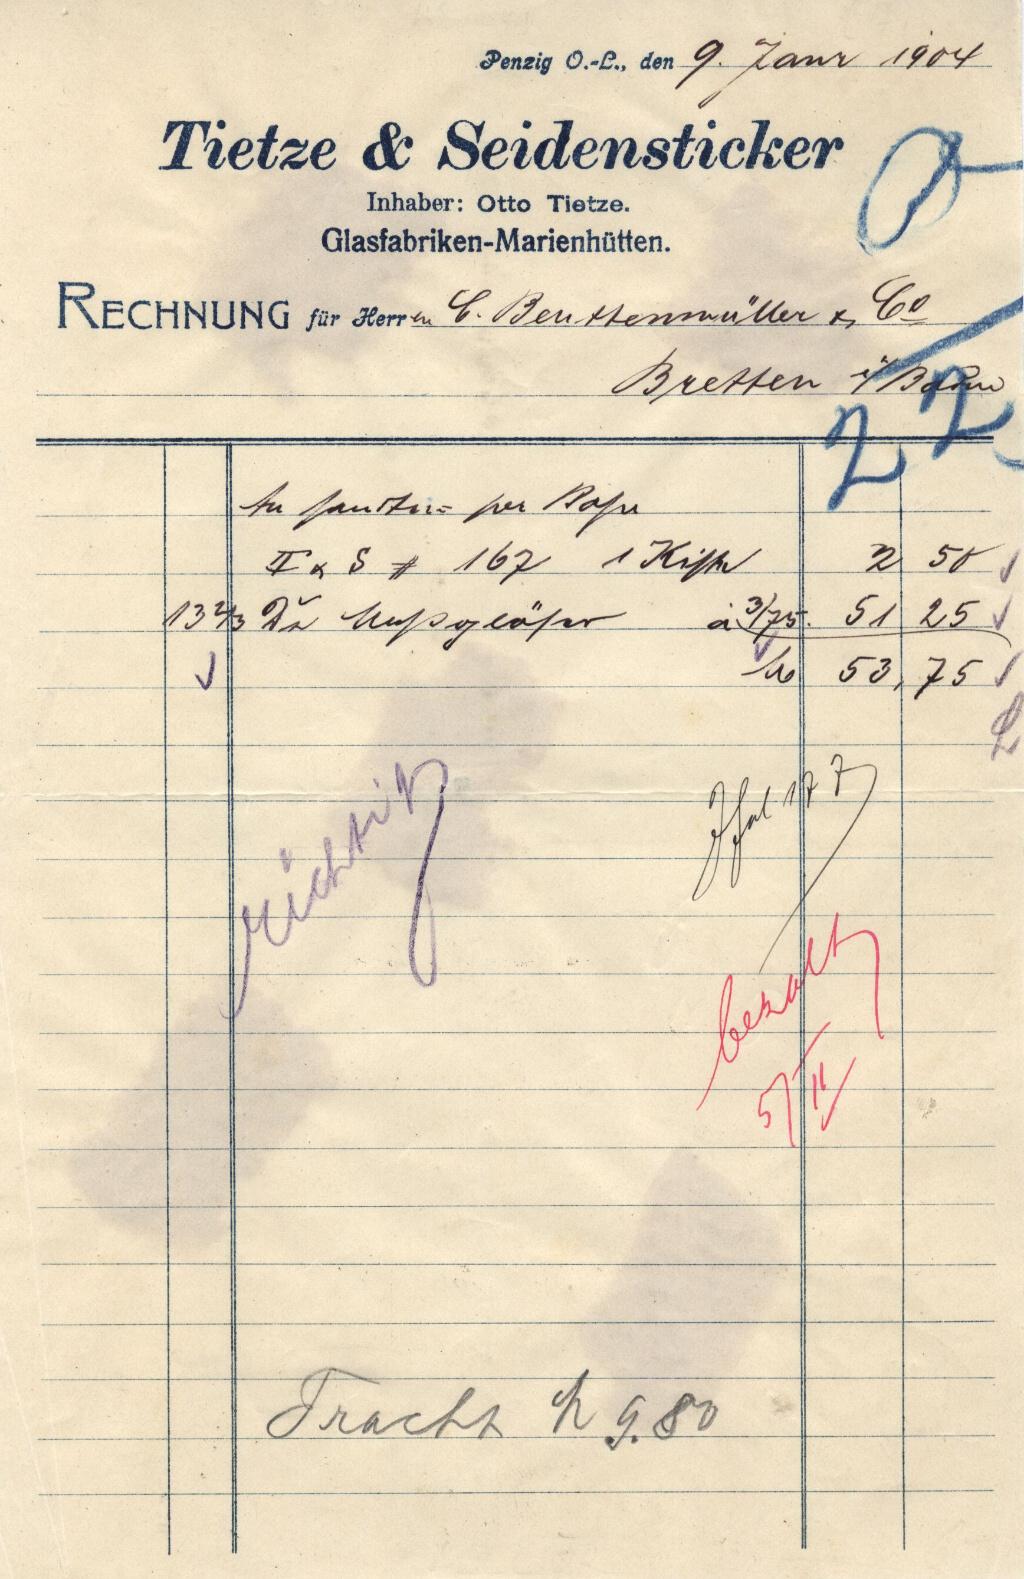 Penzig O.-L., den 9. Janr 1904
Tietze & Seidensticker
Inhaber: Otto Tietze.
Glasfabriken-Marienhütten.
RECHNUNG für Herren C. Beuttenmüller & Co
Bretten i/Baden
per Bahn
T & S # 167 1 Kiste 2 50
13 2/3 Dz à 3/75. 51 25
M 53,75
richtig
177
bezahlt
5/II
Fracht M 9.80
22